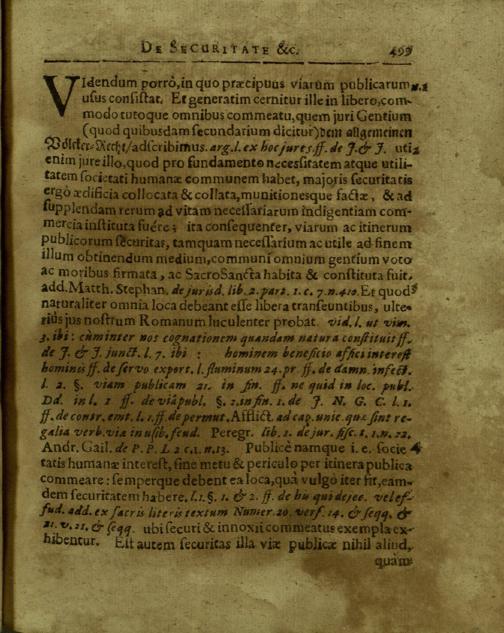 DE SECURITATE &c. 499
VIdendum porrò, in quo præcipuus viarum publicarum n. 1
usus consistat. Et generatim cernitur ille in libero, com-
modo tutoque omnibus commeatu, quem juri Gentium
(quod quibusdam secundarium dicitur) dem allgemeinen
Völcker-Recht/ adscribimus. arg. l. ex hoc jure 5. ff. de J. & J. uti 2
enim jure illo, quod pro fundamento necessitatem atque utili-
tatem societati humanæ communem habet, majoris securitatis
ergò ædificia collocata & collata, munitionesque factæ, & ad
supplendam rerum ad vitam necessariarum indigentiam com-
mercia instituta fuére; ita consequenter, viarum ac itinerum
publicorum securitas, tamquam necessarium ac utile ad finem
illum obtinendum medium, communi omnium gentium voto
ac moribus firmata, ac SacroSancta habita & constituta fuit.
add. Matth. Stephan. de jurisd. lib. 2. part. 1. c. 7. n. 410. Et quod 3
naturaliter omnia loca debeant esse libera transeuntibus, ulte-
rius jus nostrum Romanum luculenter probat. vid. l. ut vim.
3. ibi: cùm inter nos cognationem quandam natura constituit ff.
de J. & J. junct. l. 7. ibi : hominem beneficio affici interest
hominis ff. de servo export. l. fluminum 24. pr. ff. de damn. infect.
l. 2. §. viam publicam 21. in fin. ff. ne quid in loc. publ.
Dd. in l. 1 ff. de viâ publ. §. 1. in fin. 1. de J. N. G. C. l. 1.
ff. de contr. emt. l. 1. ff. de permut. Afflict. ad cap. unic. quæ sint re-
galia verb. viæ in usib. feud. Peregr. lib. 1. de jur. fisc. t. 1. n. 22.
Andr. Gail. de P. P. L 2 c. 1. n. 13. Publicè namque i. e. socie 4
tatis humanæ interest, sine metu & periculo per itinera publica
commeare: semperque debent ea loca, quà vulgò iter fit, eam-
dem securitatem habere. l. 1. §. 1. & 2. ff. de his qui dejec. vel ef-
fud. add. ex sacris literis textum Numer. 20. vers. 14. & seqq. &
21. v. 21. & seqq. ubi securi & innoxii commeatus exempla ex-
hibentur. Est autem securitas illa viæ publicæ nihil aliud,
quàm